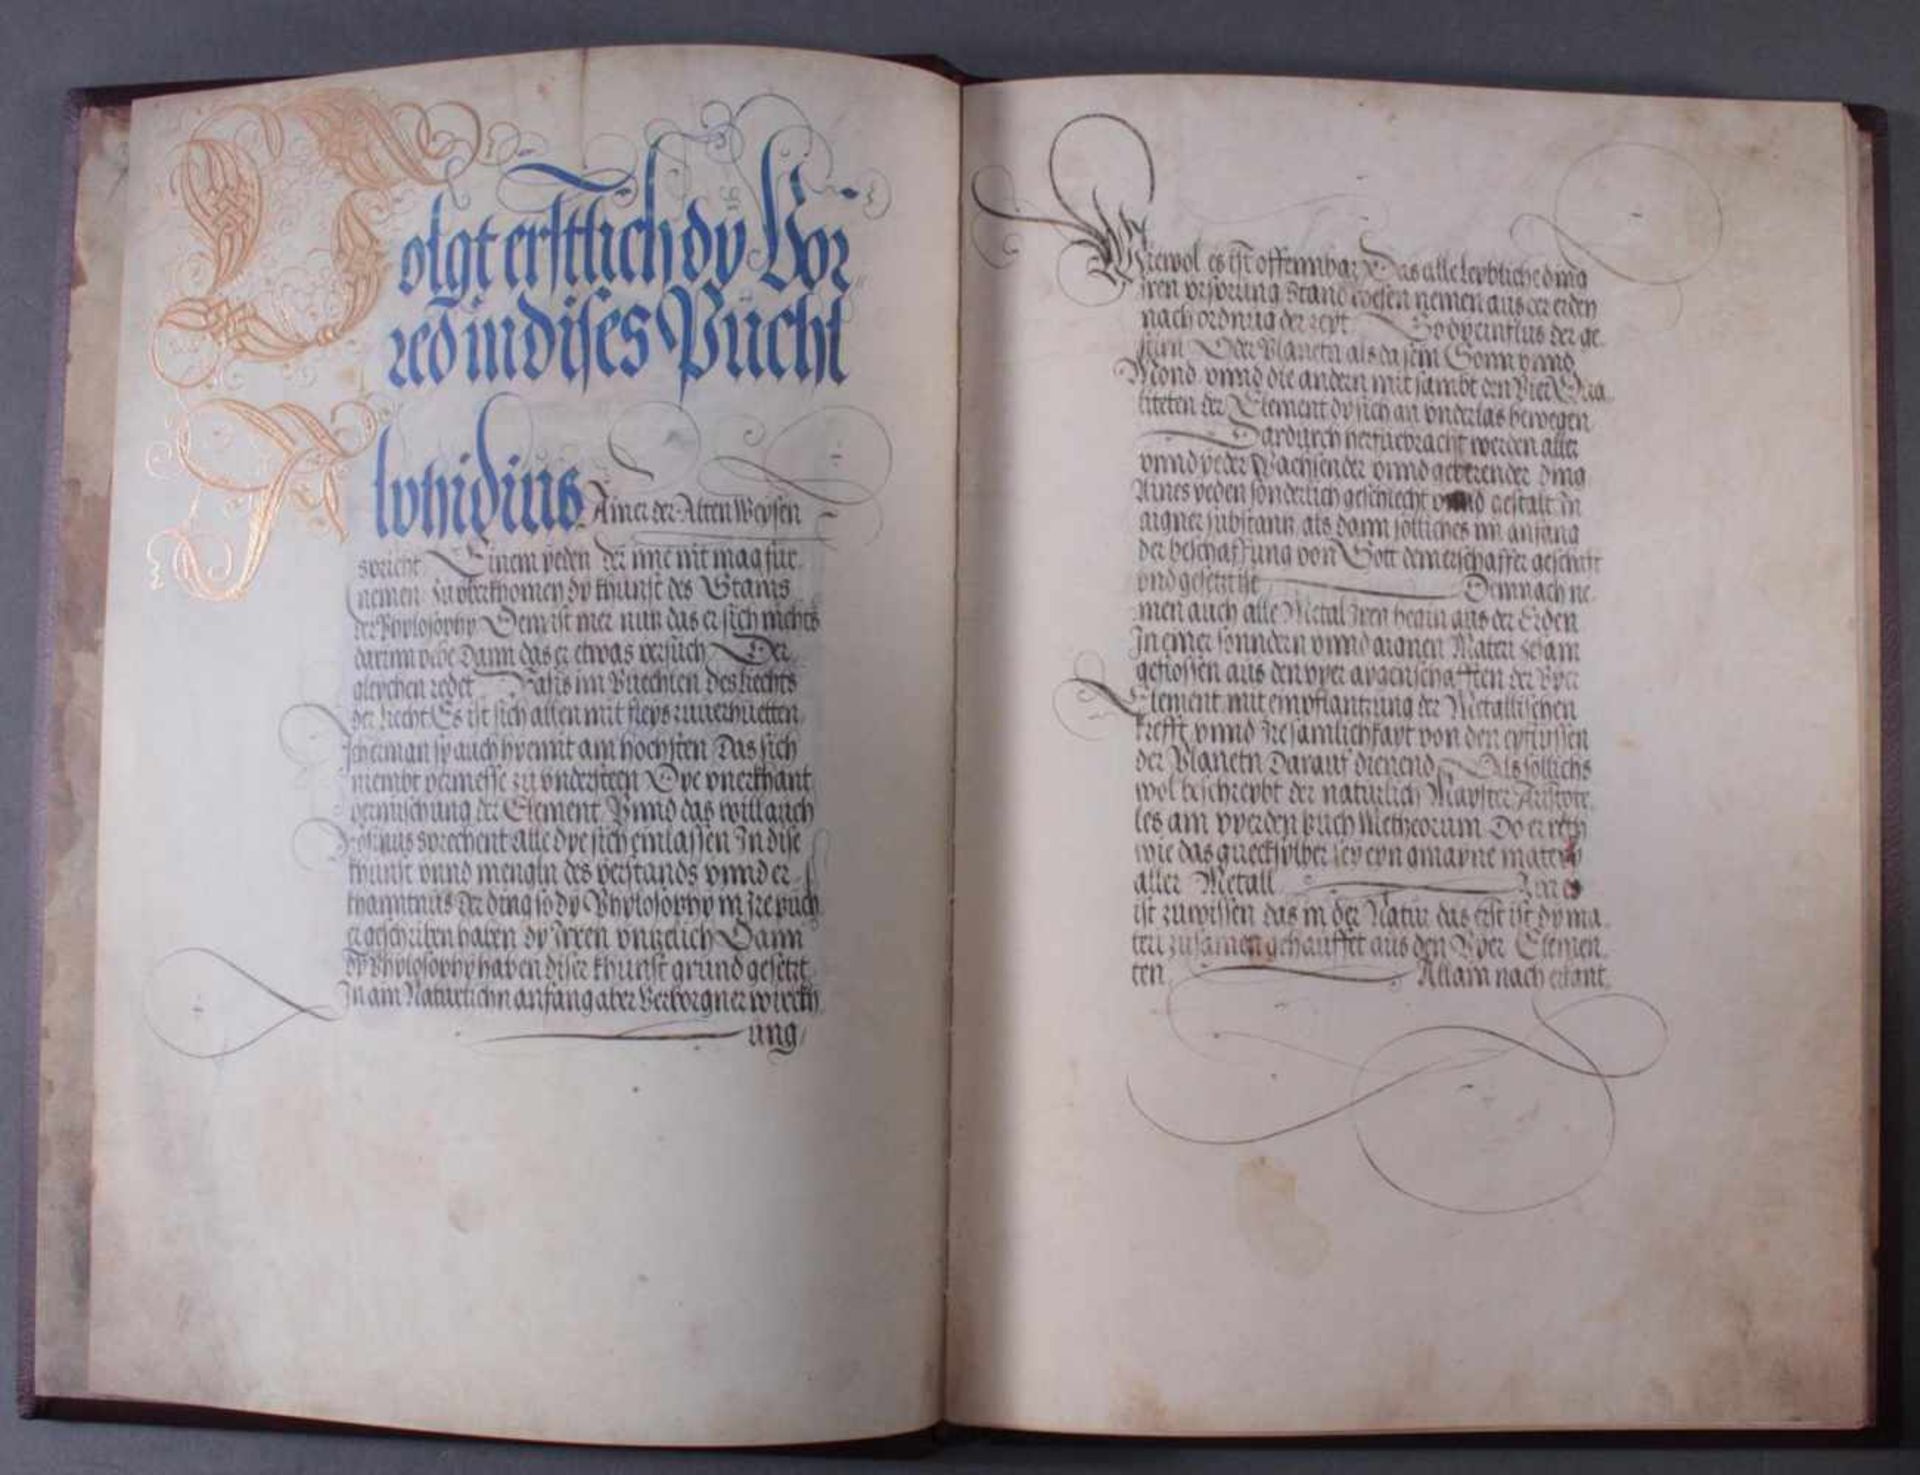 Volgt erstlich dy Vor
red in dises Püchl
Alphidius Ainer der Alten Weysen
spricht Einem yeden der ime nit mag für
nemen zu vberkhomen dy khunst des Stains
der Phylosophy Dem ist mer nutz das er sich nichts
darinn vebe Dann das er etwas versuch Der
gleychen redet Rasis im Puechlen des Liechts
der Liecht Es ist sich allen mit fleys zuuerhuetten
scherman sy auch hyemit am hochsten Das sich
niembt vermesse zu vndersteen Dye vnerkhant
vermischung der Element Vnnd das will auch
Rosinus sprechent alle dye sich einlassen In dise
khunst vnnd mengln des verstands vnnd er
khanntnus der ding so dy Phylosophy in Ire puch
er geschriben haben dy Irren vntzelich Dann
Dy Phylosophy haben diser khunst grund gesetzt
In ain Naturlichn anfang aber Verborgner wirckh
ung
Wiewol es ist offennbar Das alle leybliche ding
Iren vrsprung Stand wesen nemen aus der erden
nach ordnug der zeyt So dy einflus der ge
stirn Oder Planetn als da sein Sonn vnnd
Mond vnnd die andern mit sambt den Vier Qua
liteten der Element dy sich an vnderlas bewegen
Dardurch herfuebracht werden aller
vnnd yeder Wachsender vnnd geberender ding
Aines yeden sonderlich geschlecht vnnd gestalt in
aigner substantz als dann sölliches im anfang
der beschaffung von Gott dem erschaffer geschafft
vnd gesetzt ist Demnach ne
men auch alle Metal Iren begin aus der Erden
In einer sonndern vnnd aignen Materi zesam
geflossen aus den vyer aygenschafften der Vyer
Element mit empflantzung der Metallischen
krefft vnnd Ire samlichkayt von den eyflussen
der Planetn Darauf dienend Als söllichs
wol beschreybt der naturlich Mayster Aristote
les am vyerden Buch Metheorum Do er redt
wie das queckhsylber sey eyn gmayne matery
aller Metall
ist zuwissen das in der Natur das erst ist dy ma
teri zusamen gehauffet aus den Vyer Elemen
ten Allain nach erkant